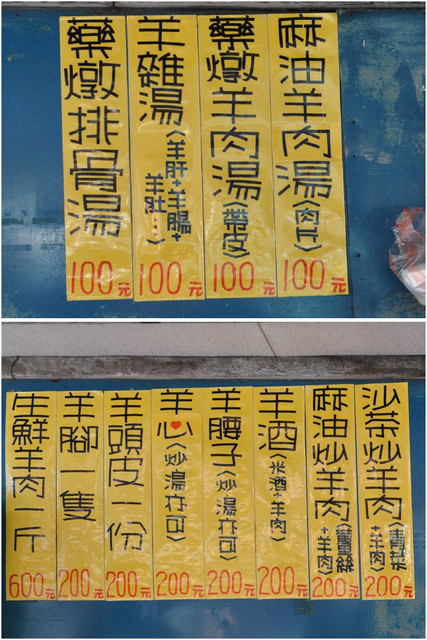 麻油羊肉湯(肉片)
100元
藥燉羊肉湯(帶皮)
100元
羊雜湯(羊肝+羊腸+
羊肚...)
100元
藥燉排骨湯
100元
沙茶炒羊肉(青菜
+羊肉)
200元
麻油炒羊肉(薑絲
+羊肉)
200元
羊酒(米酒+羊肉)
200元
羊腰子(炒湯在可)
200元
羊心(炒湯在可)
200元
羊頭皮一份
200元
羊腳一隻
200元
生鮮羊肉一斤
600元